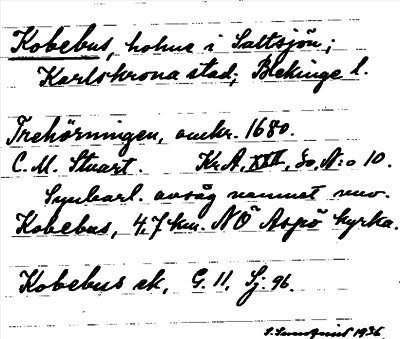 Kobebus, holme i Saltsjön;
Karlskrona stad; Blekinge l.
Trehörningen, omkr. 1680.
C. M. Stuart. Kr.A, XXII, So, N:o 10.
Synbarl. avsåg namnet nuv.
Kobebus, 4,7 km. NÖ Aspö kyrka.
Kobebus ek, G. 11, Sj: 96.
1936